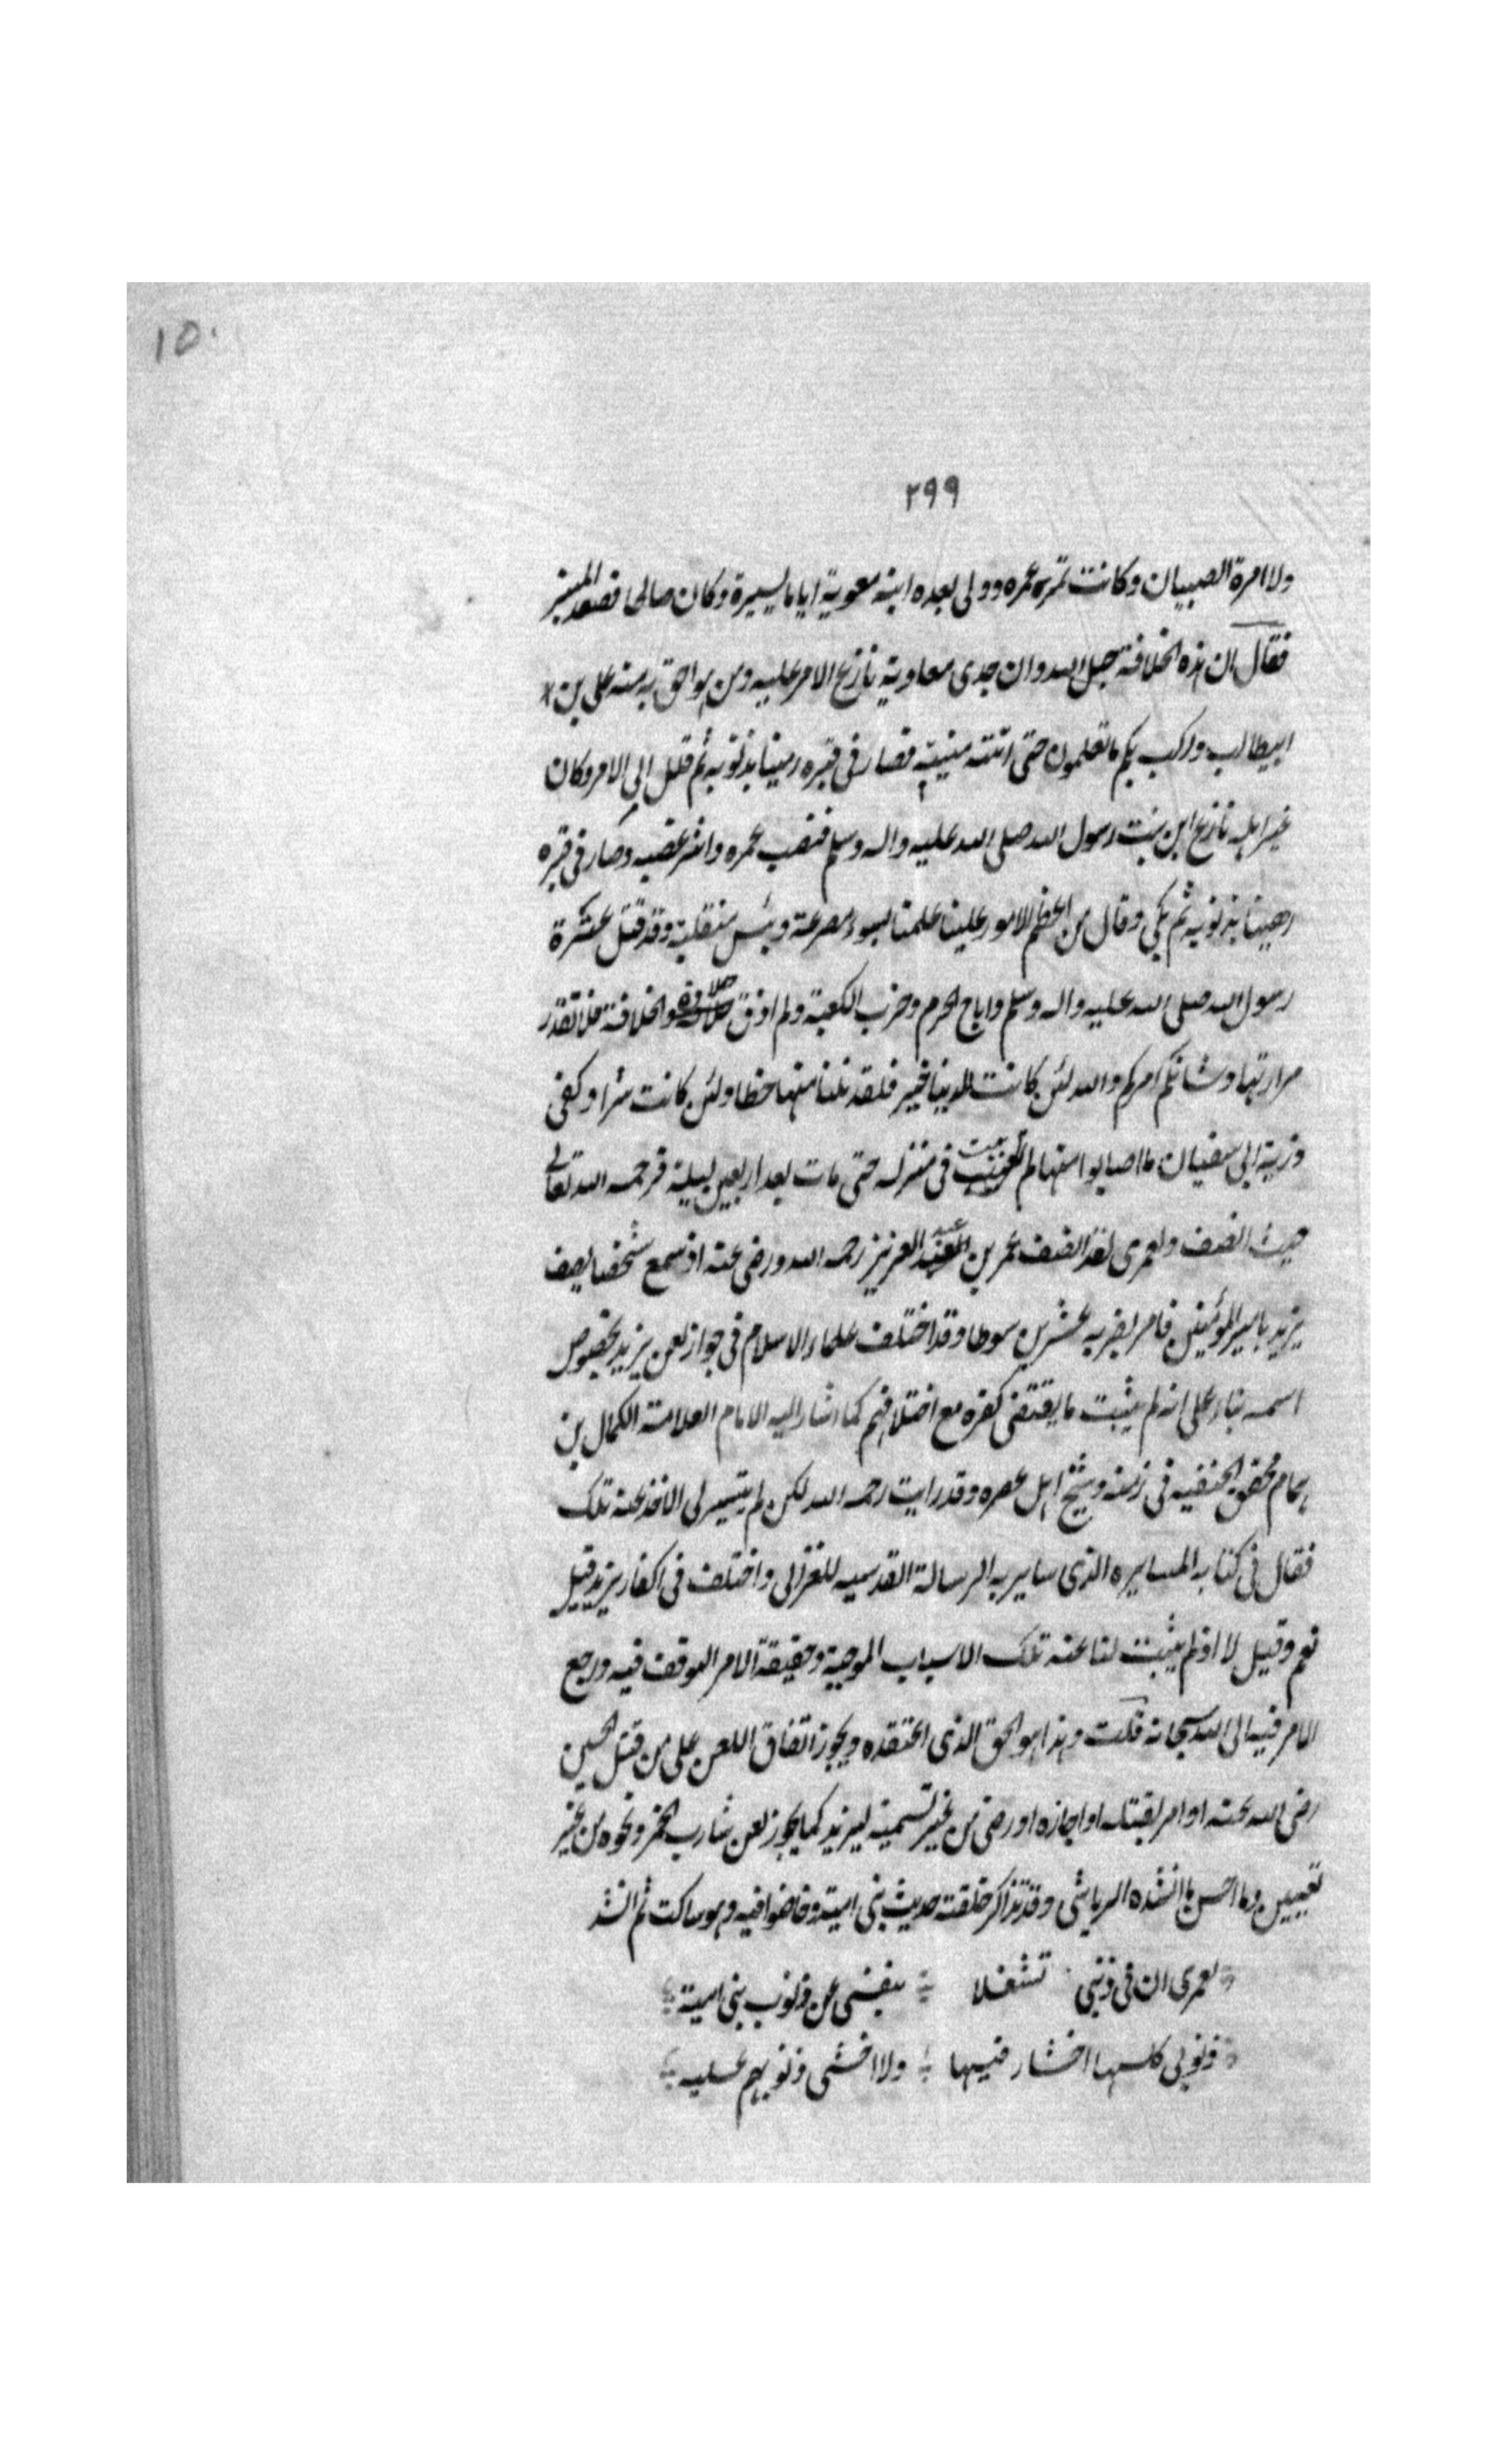 ١٥٠
٢٩٩
ولا امرة الصبيان وكانت ثمرة عمره وولى بعده ابنه معوية اياما يسيرة وكان صالحا فصعد المنبر
فقال ان هذه الخلافة حبل الله وان جدى معاوية نازع الامر عليه ومن هو احق به منه على بن
ابيطالب وركب بكم ما تعلمون حتى اتته منيته فصار فى قبره رهينا بذنوبه ثم قلل ابى الامر وكان
غير اهله نازع ابن بنت رسول الله صلى الله عليه واله وسلم فقصف عمره وانبتر عقبه وصار فى قبره
رهينا بذنوبه ثم بكى وقال من اعظم الامور علينا علمنا بسوء مصرعة وبئس منقلبه وقد قتل عترة
رسول الله صلى الله عليه واله وسلم واباح الحرم وخرب الكعبة ولم اذق حلاوة الخلافة فلا اتقلد
مرارتها وشانكم امركم والله لئن كانت الدينا خير فلقد نلنا منها حظا ولئن كانت شرا وكفى
ذرية ابى سفيان ما اصابوا منها ثم تغيبت فى منزله حتى مات بعد اربعين ليلة فرحمه الله تعالى
حيث انصف ولعمرى لقد انصف عمر بن عبد العزيز رحمه الله ورضى عنه اذ سمع شخصا يصف
يزيد بامير المؤمنين فامر بضربه عشرين سوطا وقد اختلف علماء الاسلام فى جواز لعن يزيد بخصوص
اسمه بناء على انه لم يثبت ما يقتضى كفره مع اختلافهم كما اشار اليه الامام العلامة الكمال بن
همام محقق الحنفيه فى زمنه وشيخ اهل عصره وقد رايت رحمه الله لكن لم يتيسر لى الاخذ عنه تلك
فقال فى كتابه المسايره الذى ساير به الرسالة القدسيه للغزالى واختلف فى اكفار يزيد قيل
نعم وقيل لا اذ لم يثبت لنا عنه تلك الاسباب الموجبة وحقيقة الامر التوقف فيه ورجع
الامر فيه الى الله سبحانه قلت وهذا هو الحق الذى اعتقده ويجوز اتفاق اللعن على من قتل الحسين
رضى الله عنه او امر بقتله او اجازه او رضى من غير تسمية ليزيد كما يجوز لعن شارب الخمر ونحوه من غير
تعيين وما احسن ما انشده الرياشى وقد تذاكر حلقته حديث بنى امية وخاضوا فيه وهو ساكت ثم انشد
لعمرى ان فى ذنبى تشغلا بنفسى عن ذنوب بنى امية
ذنوبى كلها اخشار فيها ولا اخشى ذنوبهم عليه